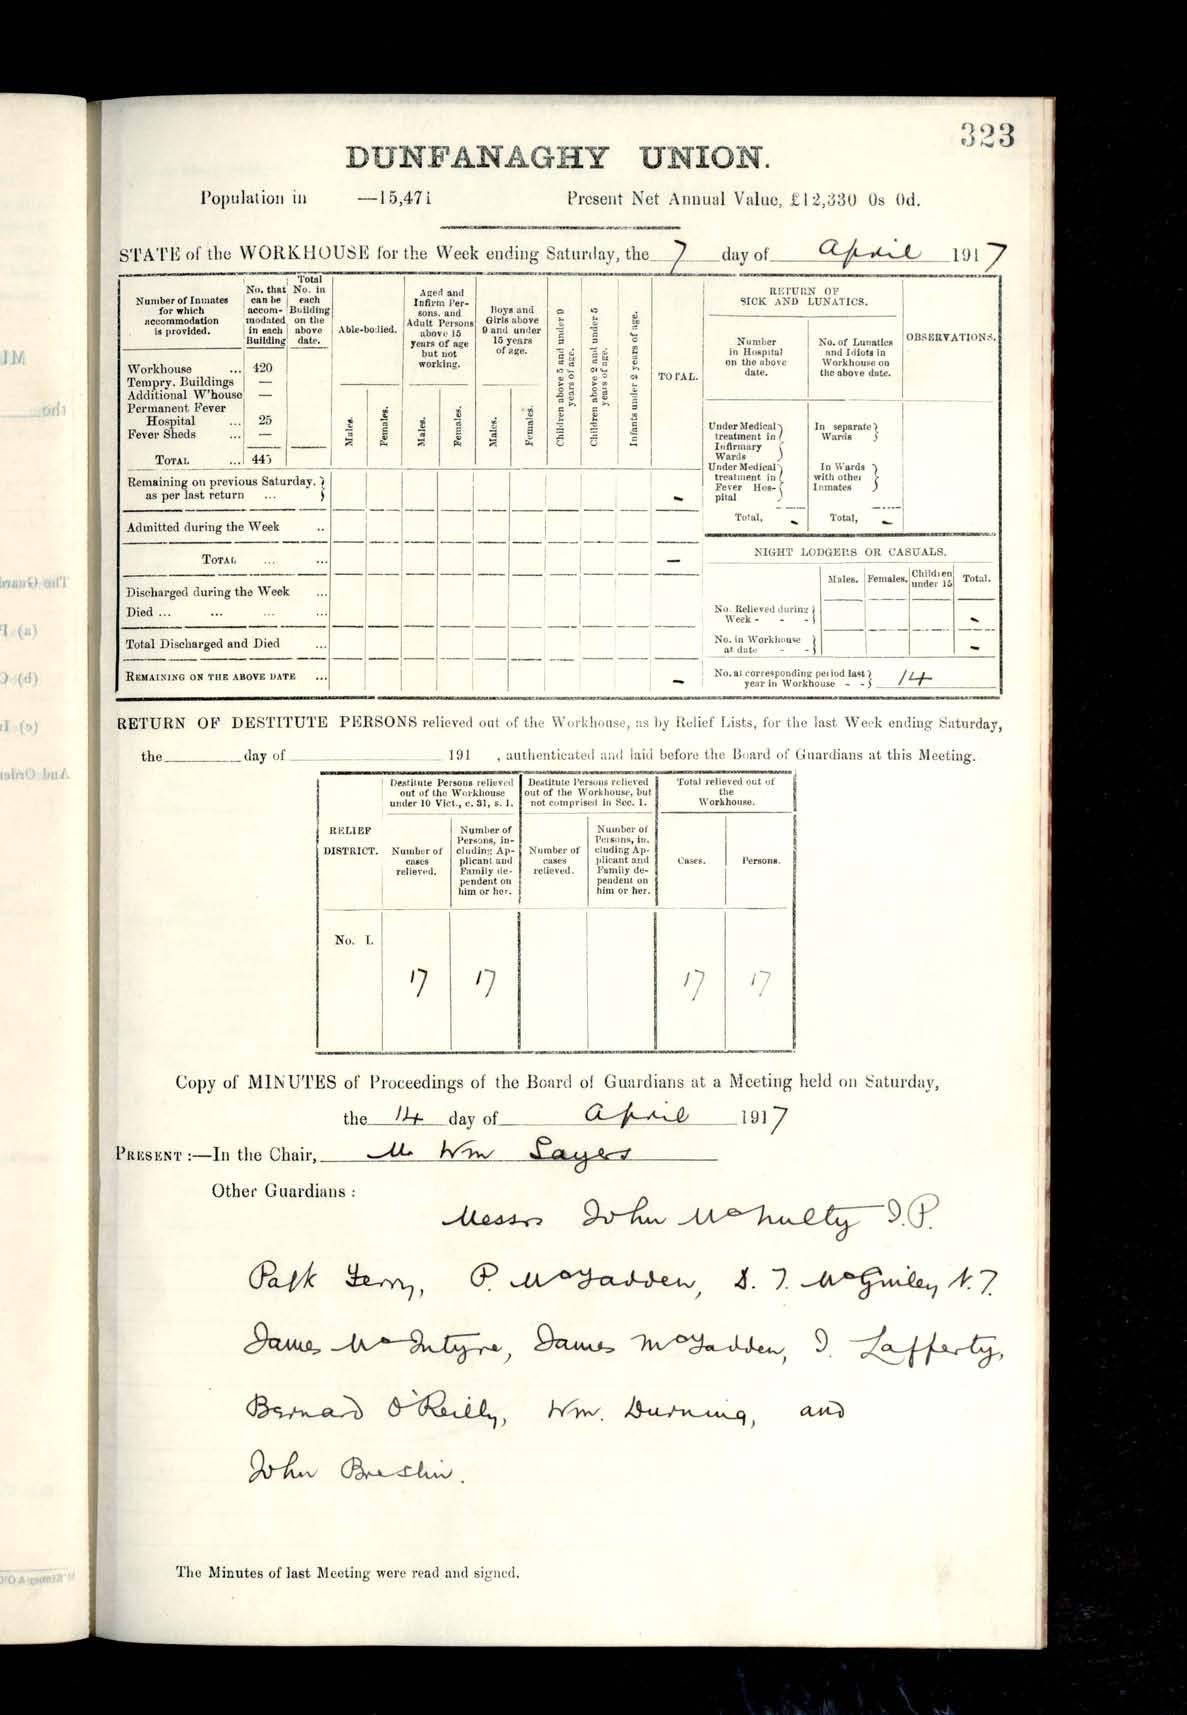 323
DUNFANAGHY UNION.
Population in —15,471 Present Net Annual Value, £12,330 0s 0d.
STATE of the WORKHOUSE for the Week ending Saturday, the 7 day of April 1917
Number of Inmates for which accommodation is provided.
No. that can be accommodated in each Building
Total No. in each Building on the above date.
Able-bodied.
Aged and Infirm Persons, and Adult Persons above 15 years of age but not working.
Boys and Girls above 9 and under 15 years of age.
Children above 5 and under 9 years of age.
Children above 2 and under 5 years of age.
Infants under 2 years of age.
TOTAL.
RETURN OF SICK AND LUNATICS.
Number in Hospital on the above date.
No. of Lunatics and Idiots in Workhouse on the above date.
OBSERVATIONS.
Males. Females. Males. Females. Males. Females.
Workhouse ... 420
Tempry. Buildings —
Additional W'house —
Permanent Fever
Hospital ... 25
Fever Sheds ... —
TOTAL ... 445
Under Medical treatment in Infirmary Wards
In separate Wards
Under Medical treatment in Fever Hospital
In Wards with other Inmates
Total, - Total, -
Remaining on previous Saturday.
as per last return ... -
Admitted during the Week ..
TOTAL ... ... —
Discharged during the Week ...
Died ... ... ... ...
Total Discharged and Died ...
REMAINING ON THE ABOVE DATE ... -
NIGHT LODGERS OR CASUALS.
Males. Females. Children under 15 Total.
No. Relieved during
Week - - - -
No. in Workhouse
at date - - -
No. at corresponding period last
year in Workhouse - - 14
RETURN OF DESTITUTE PERSONS relieved out of the Workhouse, as by Relief Lists, for the last Week ending Saturday,
the day of 191 , authenticated and laid before the Board of Guardians at this Meeting.
RELIEF DISTRICT.
Destitute Persons relieved out of the Workhouse under 10 Vict., c. 31, s. 1.
Destitute Persons relieved out of the Workhouse, but not comprised in Sec. 1.
Total relieved out of the Workhouse.
Number of cases relieved.
Number of Persons, including Applicant and Family dependent on him or her.
Number of cases relieved.
Number of Persons, including Applicant and Family dependent on him or her.
Cases. Persons.
No. I.
17 17 17 17
Copy of MINUTES of Proceedings of the Board of Guardians at a Meeting held on Saturday,
the 14 day of April 1917
PRESENT :—In the Chair, Mr Wm Sayers
Other Guardians :
Messrs John McNulty J.P.
Patk Ferry, P. McFadden, D. T. McGinley N.T.
James McIntyre, James McFadden, J. Lafferty,
Bernard O'Reilly, Wm. Durning, and
John Breslin.
The Minutes of last Meeting were read and signed.